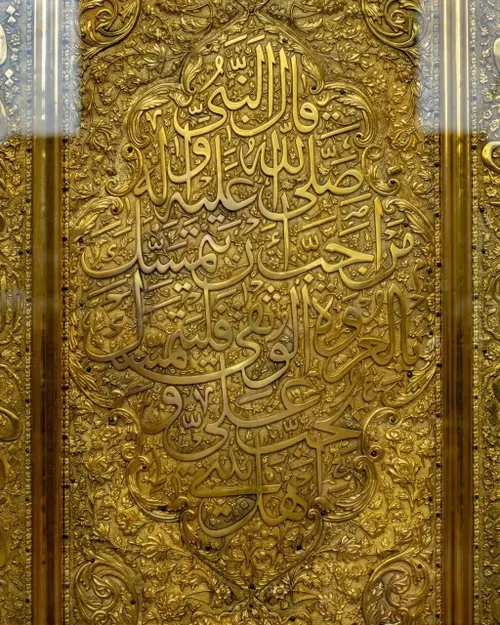 قال النبي
صلى الله عليه وآله
من أحب أن يتمسك
بالعروة الوثقى فليتمسك
بحب علي و
أهل بيتي